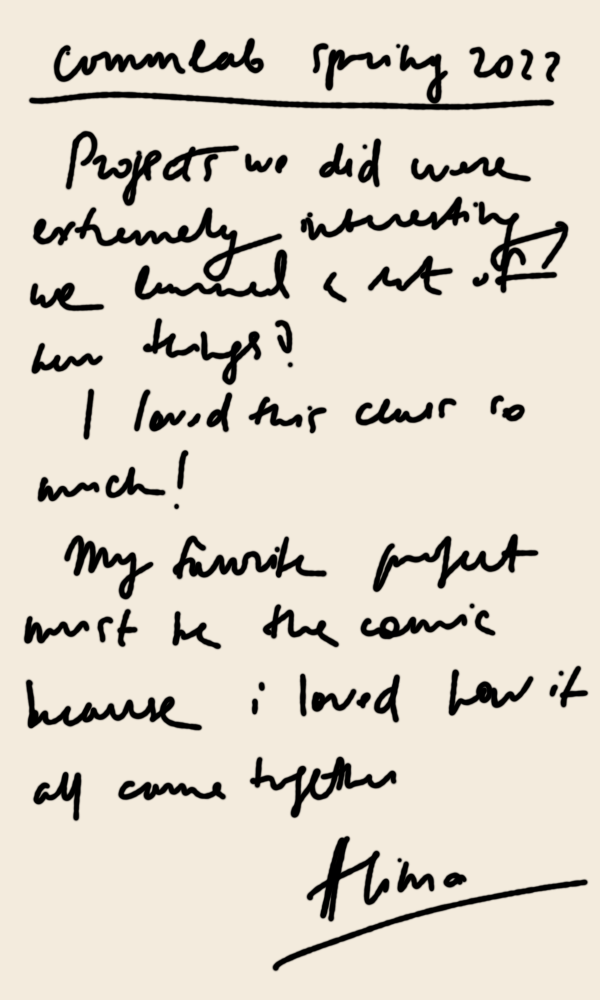 commlab spring 2022
Projects we did were
extremely interesting
we learned a lot of
new things!
I loved this class so
much!
My favorite project
must be the comic
because i loved how it
all came together
Alima